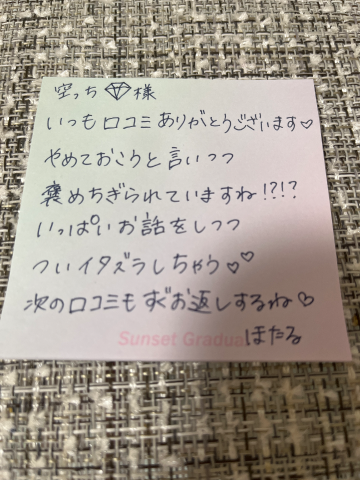 空っち💎様
いつも口コミありがとうございます♡
やめておこうと言いつつ
褒めちぎられていますね!?!?
いっぱいお話をしつつ
ついイタズラしちゃう♡♡
次の口コミも必ずお返しするね♡
Sunset Gradua
ほたる